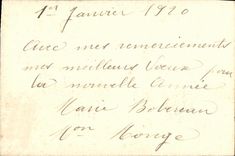 1er Janvier 1920
Avec mes remerciements
mes meilleurs Vœux pour
la nouvelle Année
Marie